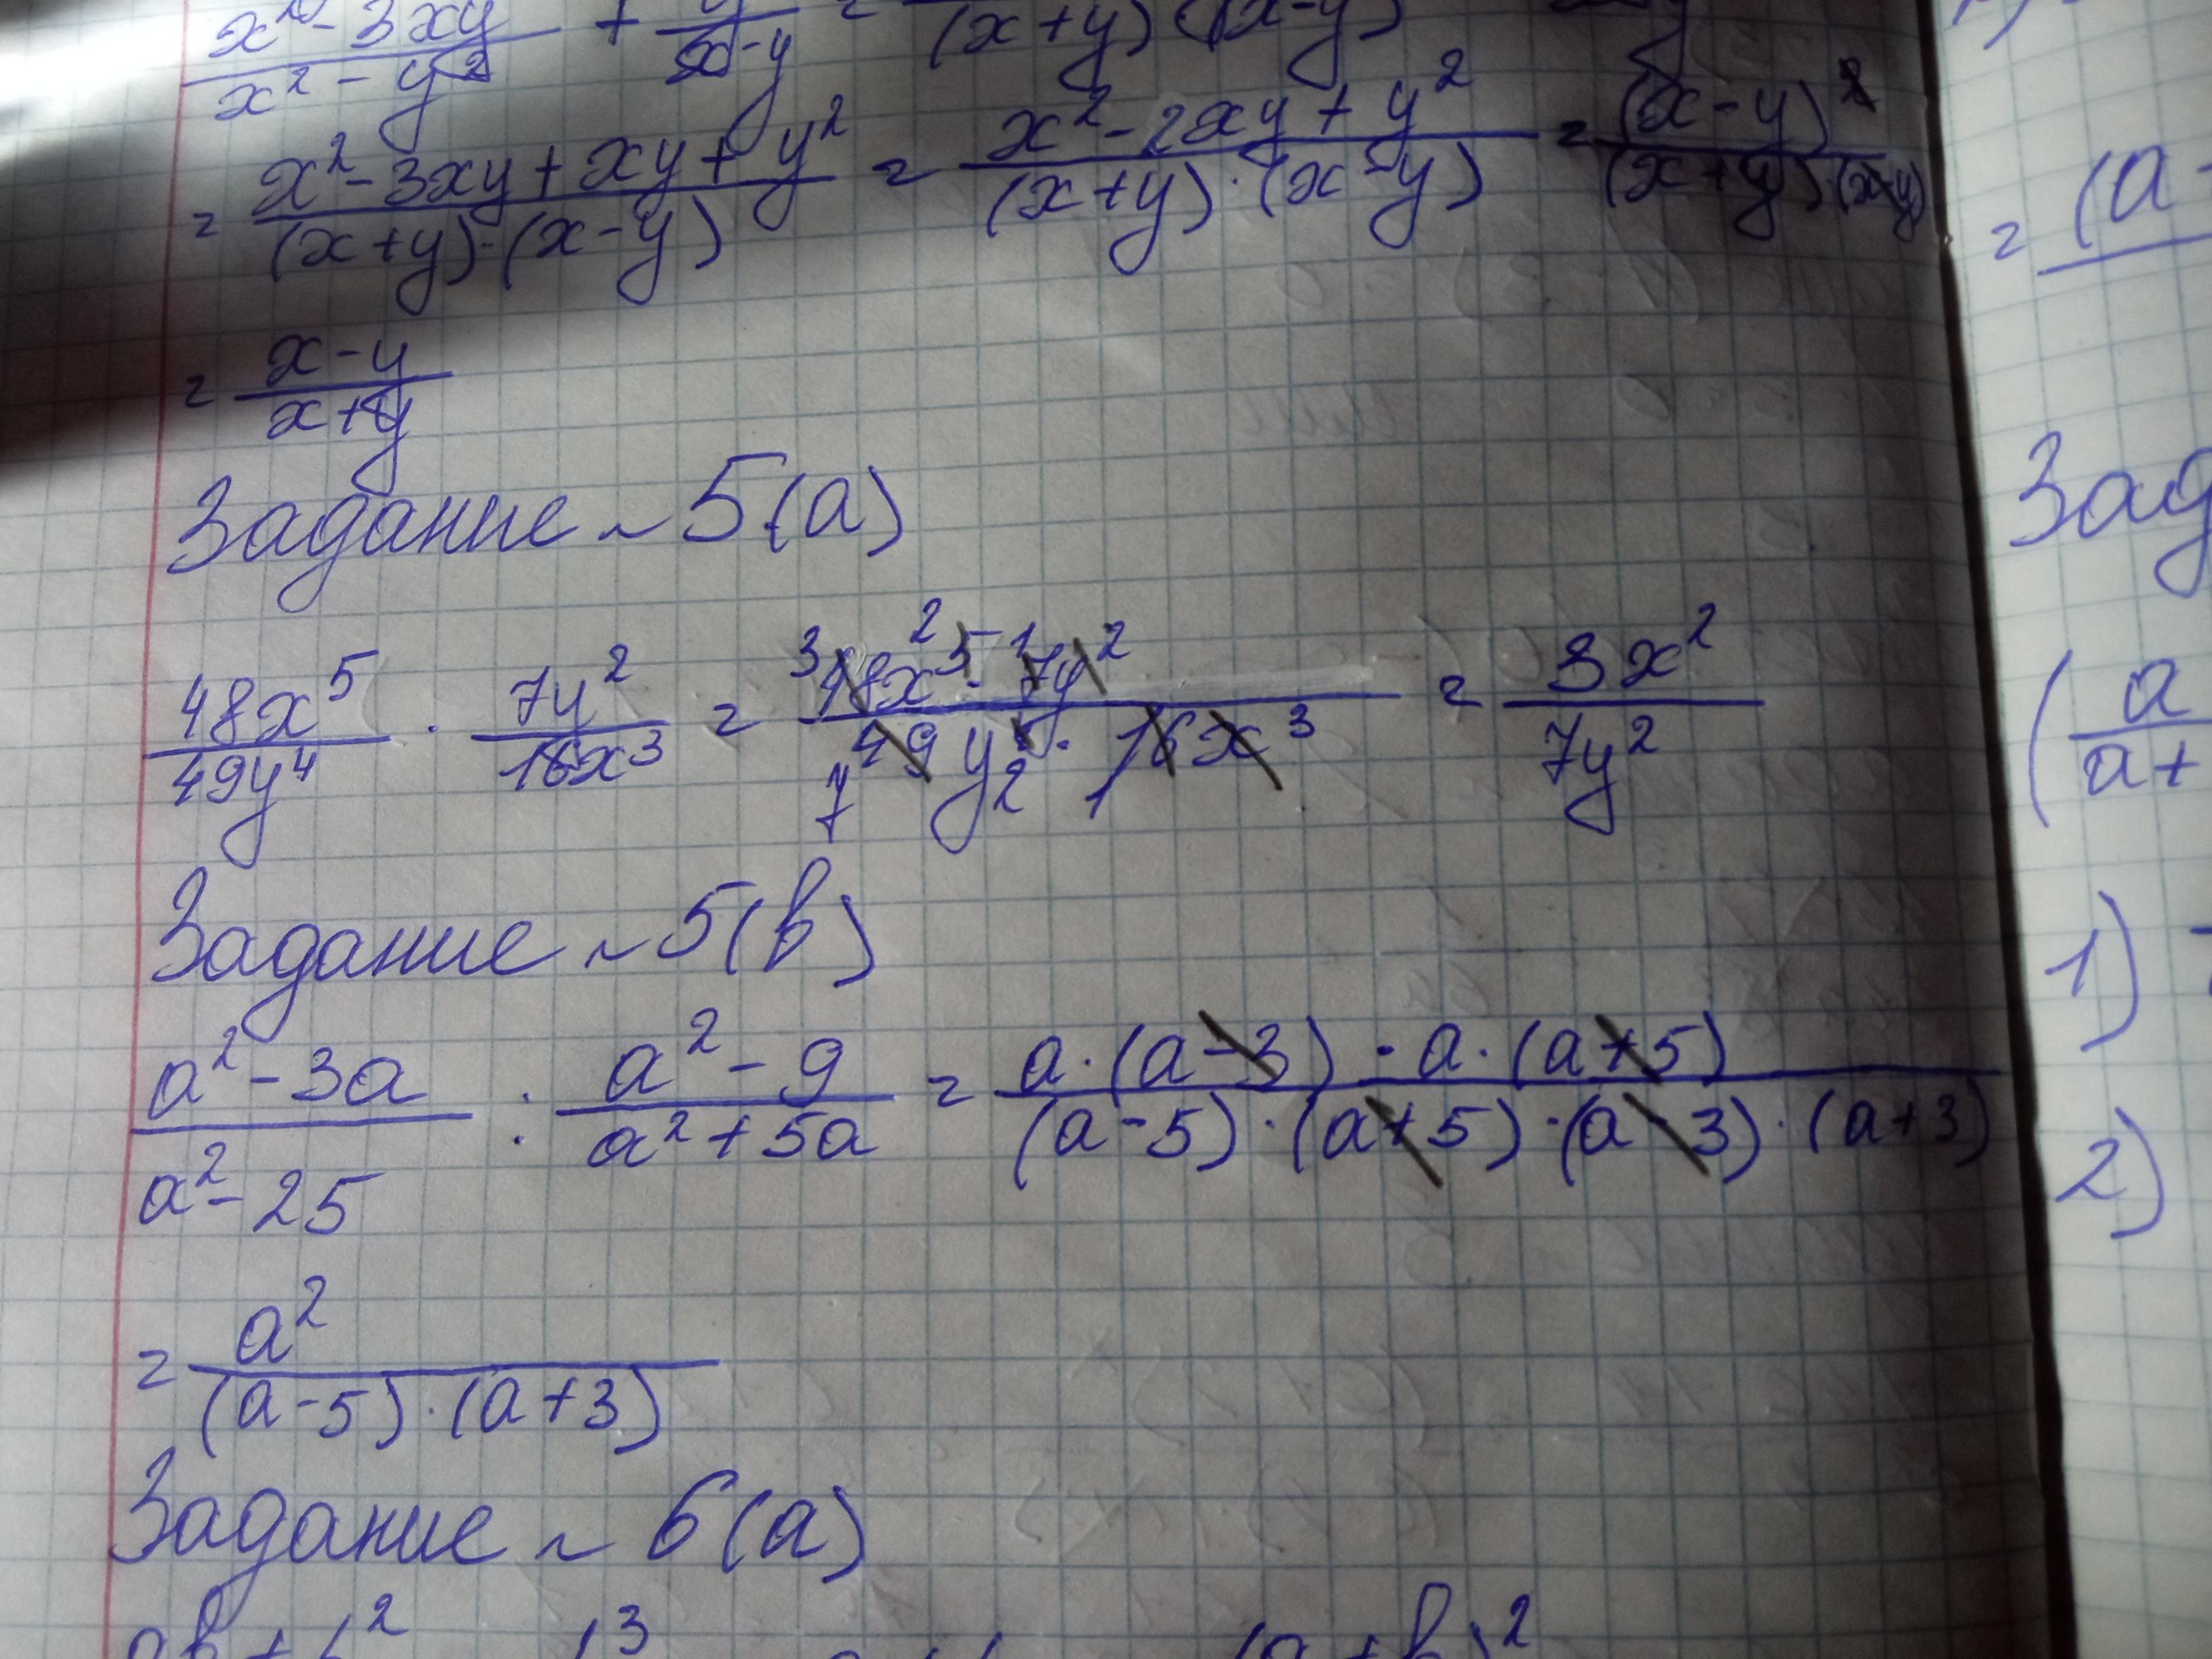 x² - 3xy / x² - y² + y / x - y = / (x+y) · (x-y)
= x² - 3xy + xy + y² / (x+y) · (x-y) = x² - 2xy + y² / (x+y) · (x-y) = (x-y)² / (x+y) · (x-y)
= x-y / x+y
Задание ~ 5(а)
48x⁵ / 49y⁴ · 7y² / 16x³ = 48x⁵ · 7y² / 49y⁴ · 16x³ = 3x² / 7y²
Задание ~ 5(в)
a² - 3a / a² - 25 : a² - 9 / a² + 5a = a · (a-3) · a · (a+5) / (a-5) · (a+5) · (a-3) · (a+3)
= a² / (a-5) · (a+3)
Задание ~ 6(а)
= (a
Зад
( a / a+
1)
2)